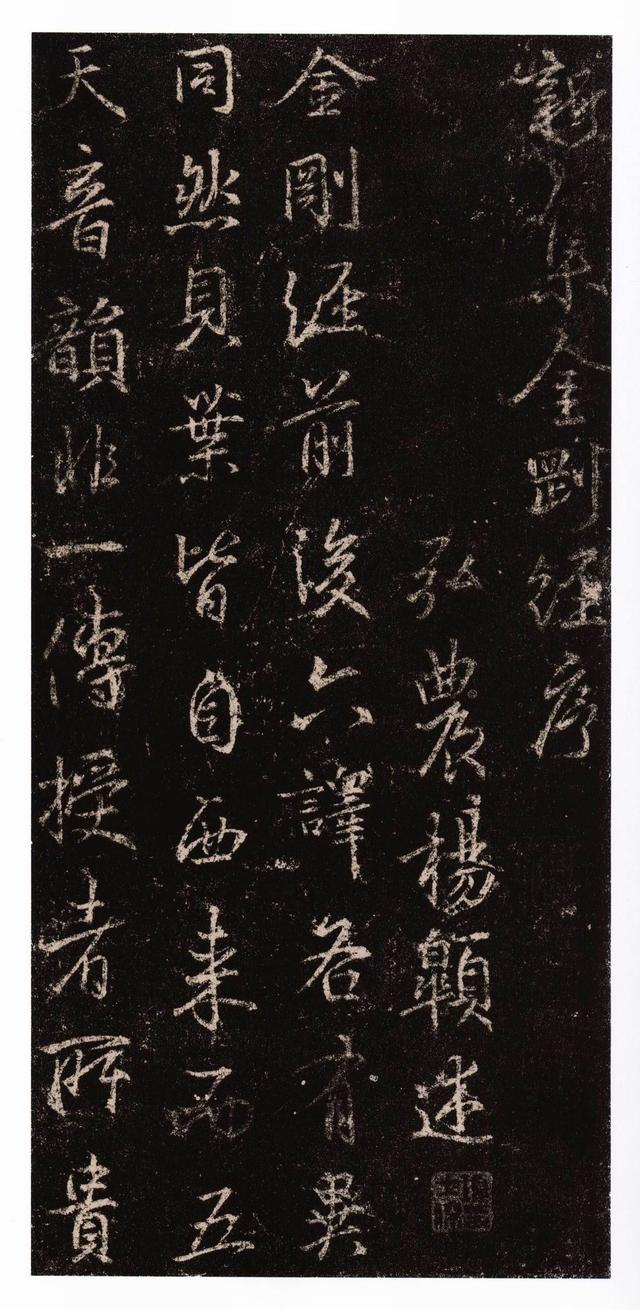 新集金剛經序
弘農楊述
金剛經前後六譯各有異
同然貝葉皆自西来而五
天音韻非一傳授者所貴